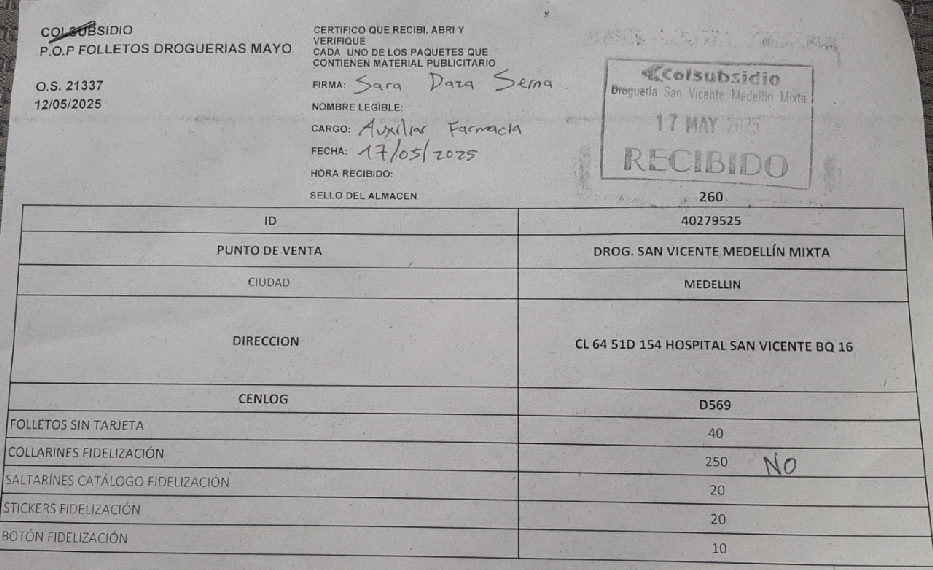 COLSUBSIDIO
P.O.P FOLLETOS DROGUERIAS MAYO
O.S. 21337
12/05/2025
CERTIFICO QUE RECIBI, ABRI Y
VERIFIQUE
CADA UNO DE LOS PAQUETES QUE
CONTIENEN MATERIAL PUBLICITARIO
FIRMA: Sara Daza Serna
NOMBRE LEGIBLE:
CARGO: Auxiliar Farmacia
FECHA: 17/05/2025
HORA RECIBIDO:
SELLO DEL ALMACEN
Colsubsidio
Droguería San Vicente Medellín Mixta
17 MAY 2025
RECIBIDO
260
ID 40279525
PUNTO DE VENTA DROG. SAN VICENTE MEDELLÍN MIXTA
CIUDAD MEDELLIN
DIRECCION CL 64 51D 154 HOSPITAL SAN VICENTE BQ 16
CENLOG D569
FOLLETOS SIN TARJETA 40
COLLARINES FIDELIZACIÓN 250 NO
SALTARÍNES CATÁLOGO FIDELIZACIÓN 20
STICKERS FIDELIZACIÓN 20
BOTÓN FIDELIZACIÓN 10